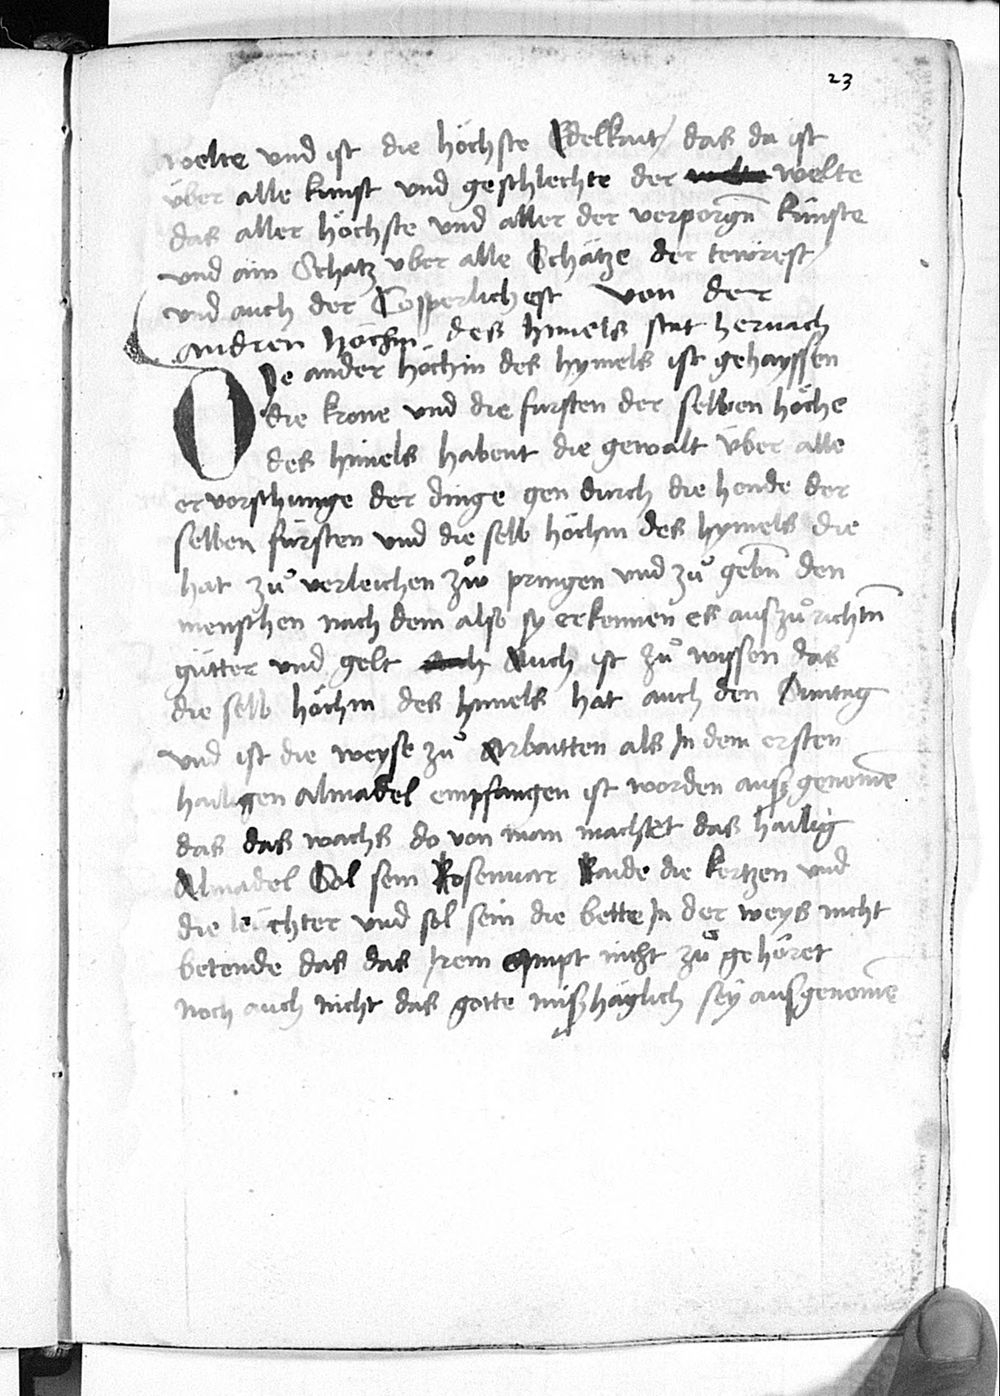 23
welte vnd ist die höchste Edelkait / das da ist
über alle kunst vnd geschlechte der welte
das aller höchste vnd aller der verporgn̄ künste
vnd ain Schatz vber alle Schätze der tewrest /
vnd auch der Cosperlichest von der
andren höchin des himels stat hernach
De ander höchin des hymels ist gehayssen
die krone vnd die fursten der selben höche
des himels habent die gewalt über alle
ervorschunge der dinge gen durch die hende der
selben fürsten vnd die selb höchin des hymels die
hat zů verleichen zůo pringen vnd zů gebn̄ den
menschen nach dem also sy erkennen es auszůrichtn̄
gütter vnd gelt Auch ist zů wissen das
die selb höchin des himels hat auch den Suntag
vnd ist die weyse zů Arbaitten als In dem ersten
hailigen almadel empfangen ist worden ausz genome̅
das das wachs do von man machtet das hailig
Almadel Sol sein Rosenuar die kertzen vnd
die leüchter vnd sol sein die bette In der weys nicht
betende das das Irem ampt nicht zů gehöret
noch auch nicht das gotte miszhäglich sey ausgenome̅